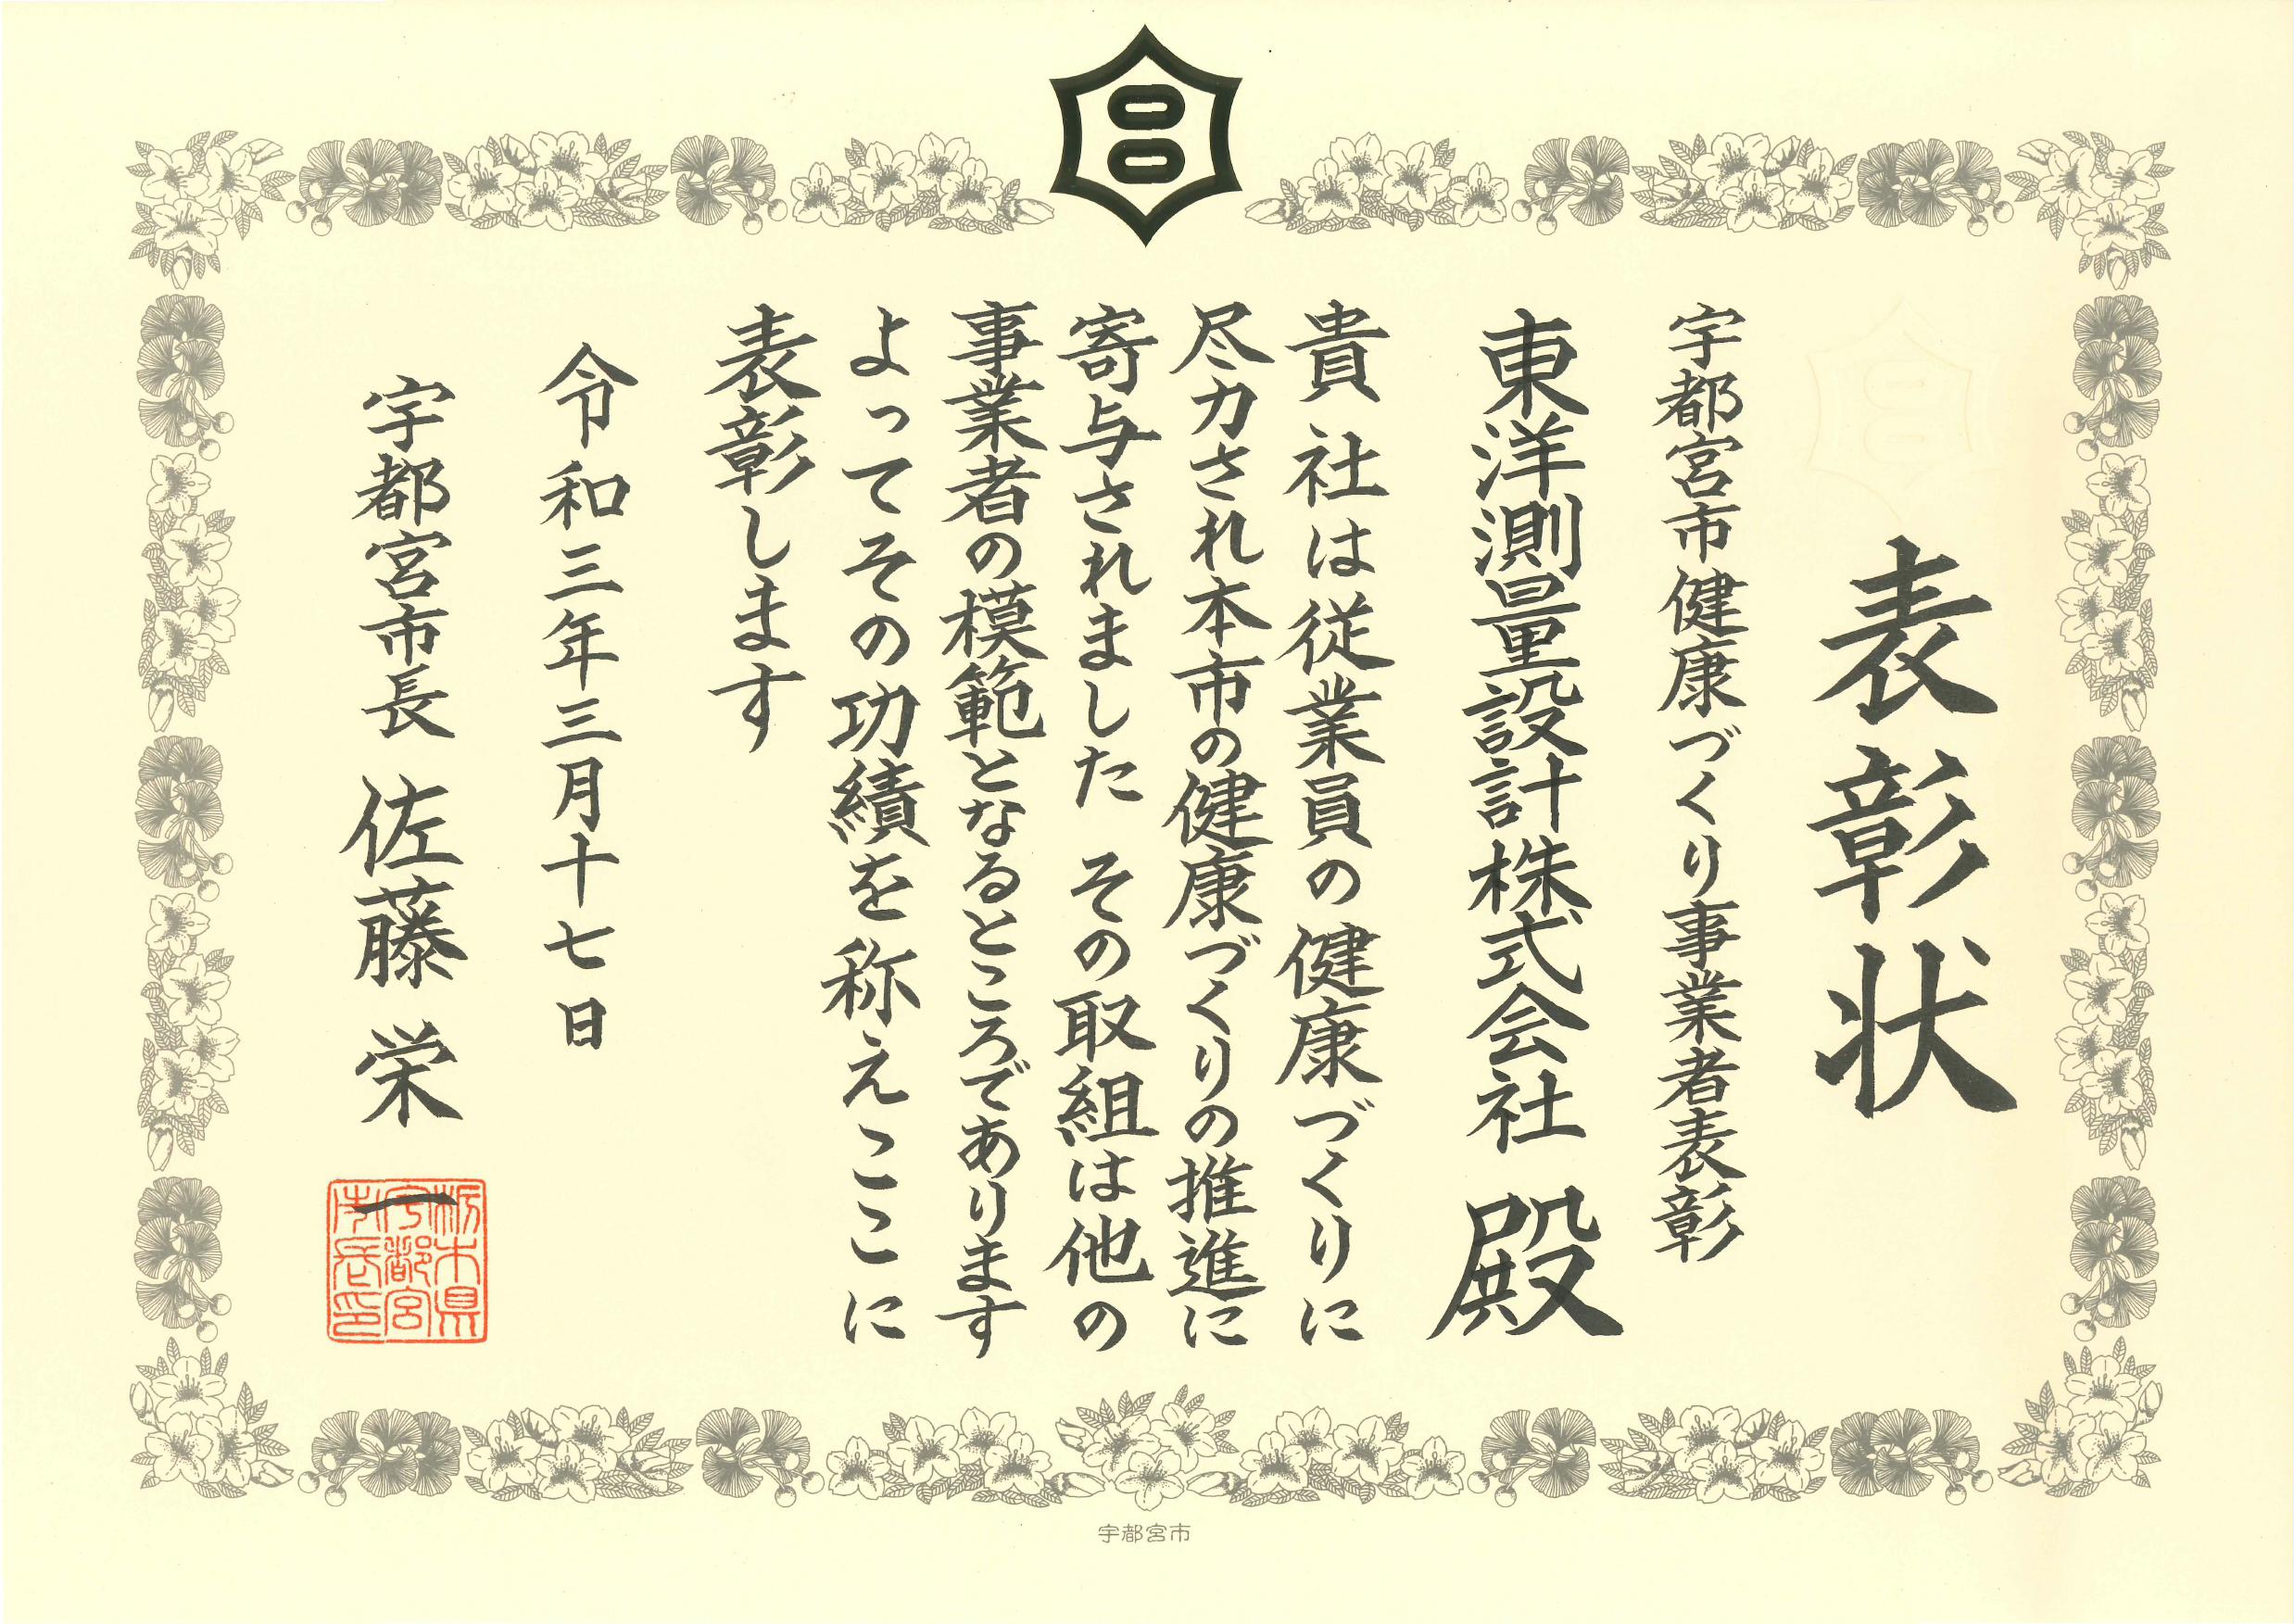 表彰状
宇都宮市健康づくり事業者表彰
東洋測量設計株式会社 殿
貴社は従業員の健康づくりに
尽力され本市の健康づくりの推進に
寄与されました その取組は他の
事業者の模範となるところであります
よってその功績を称えここに
表彰します
令和三年三月十七日
宇都宮市長 佐藤栄一
栃木県
宇都宮
市長印
宇都宮市